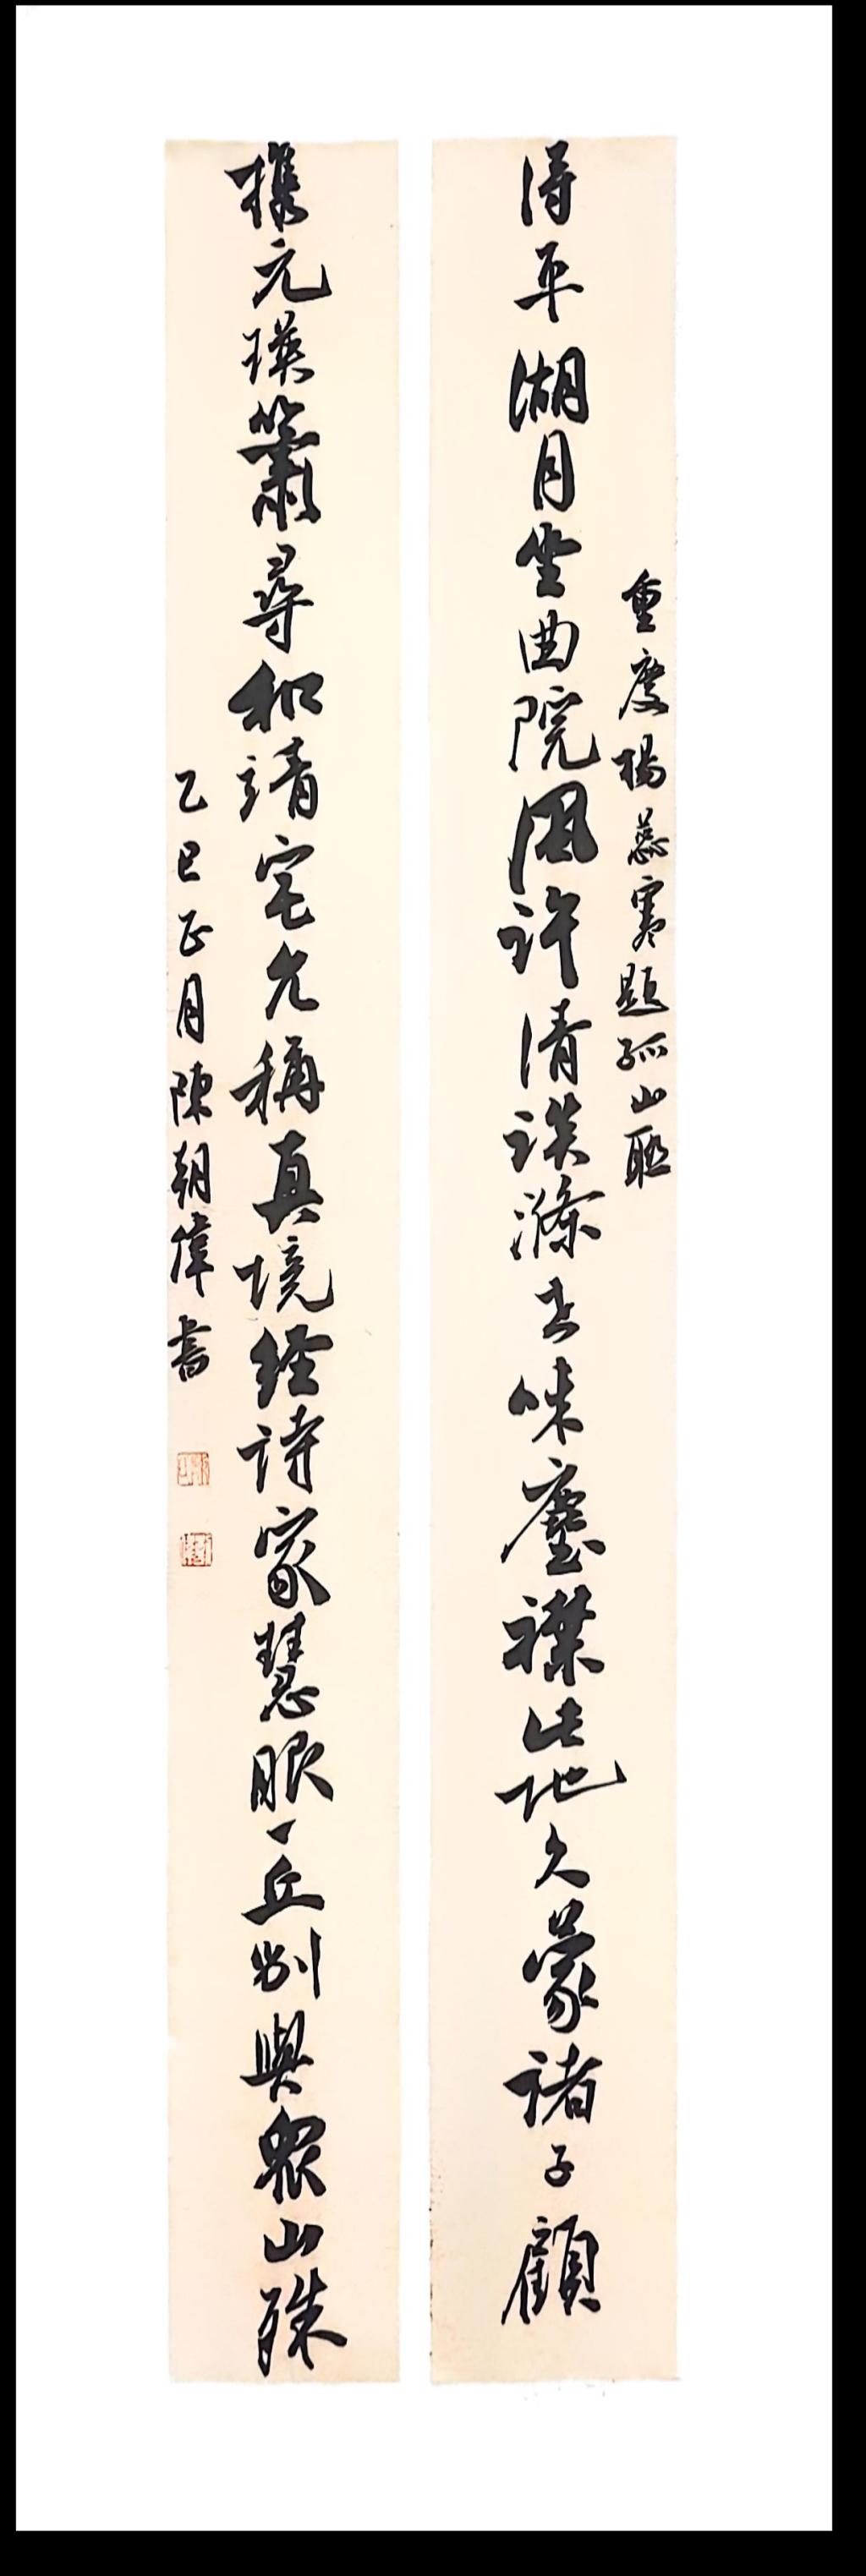 重慶楊蕊寒題孤山聯
得平湖月坐曲院風許清談滌去味塵襟此地久蒙諸子顧
攜元瑛簫尋和靖宅允稱真境經詩家慧眼一丘別與眾山殊
乙巳正月陳朝偉書